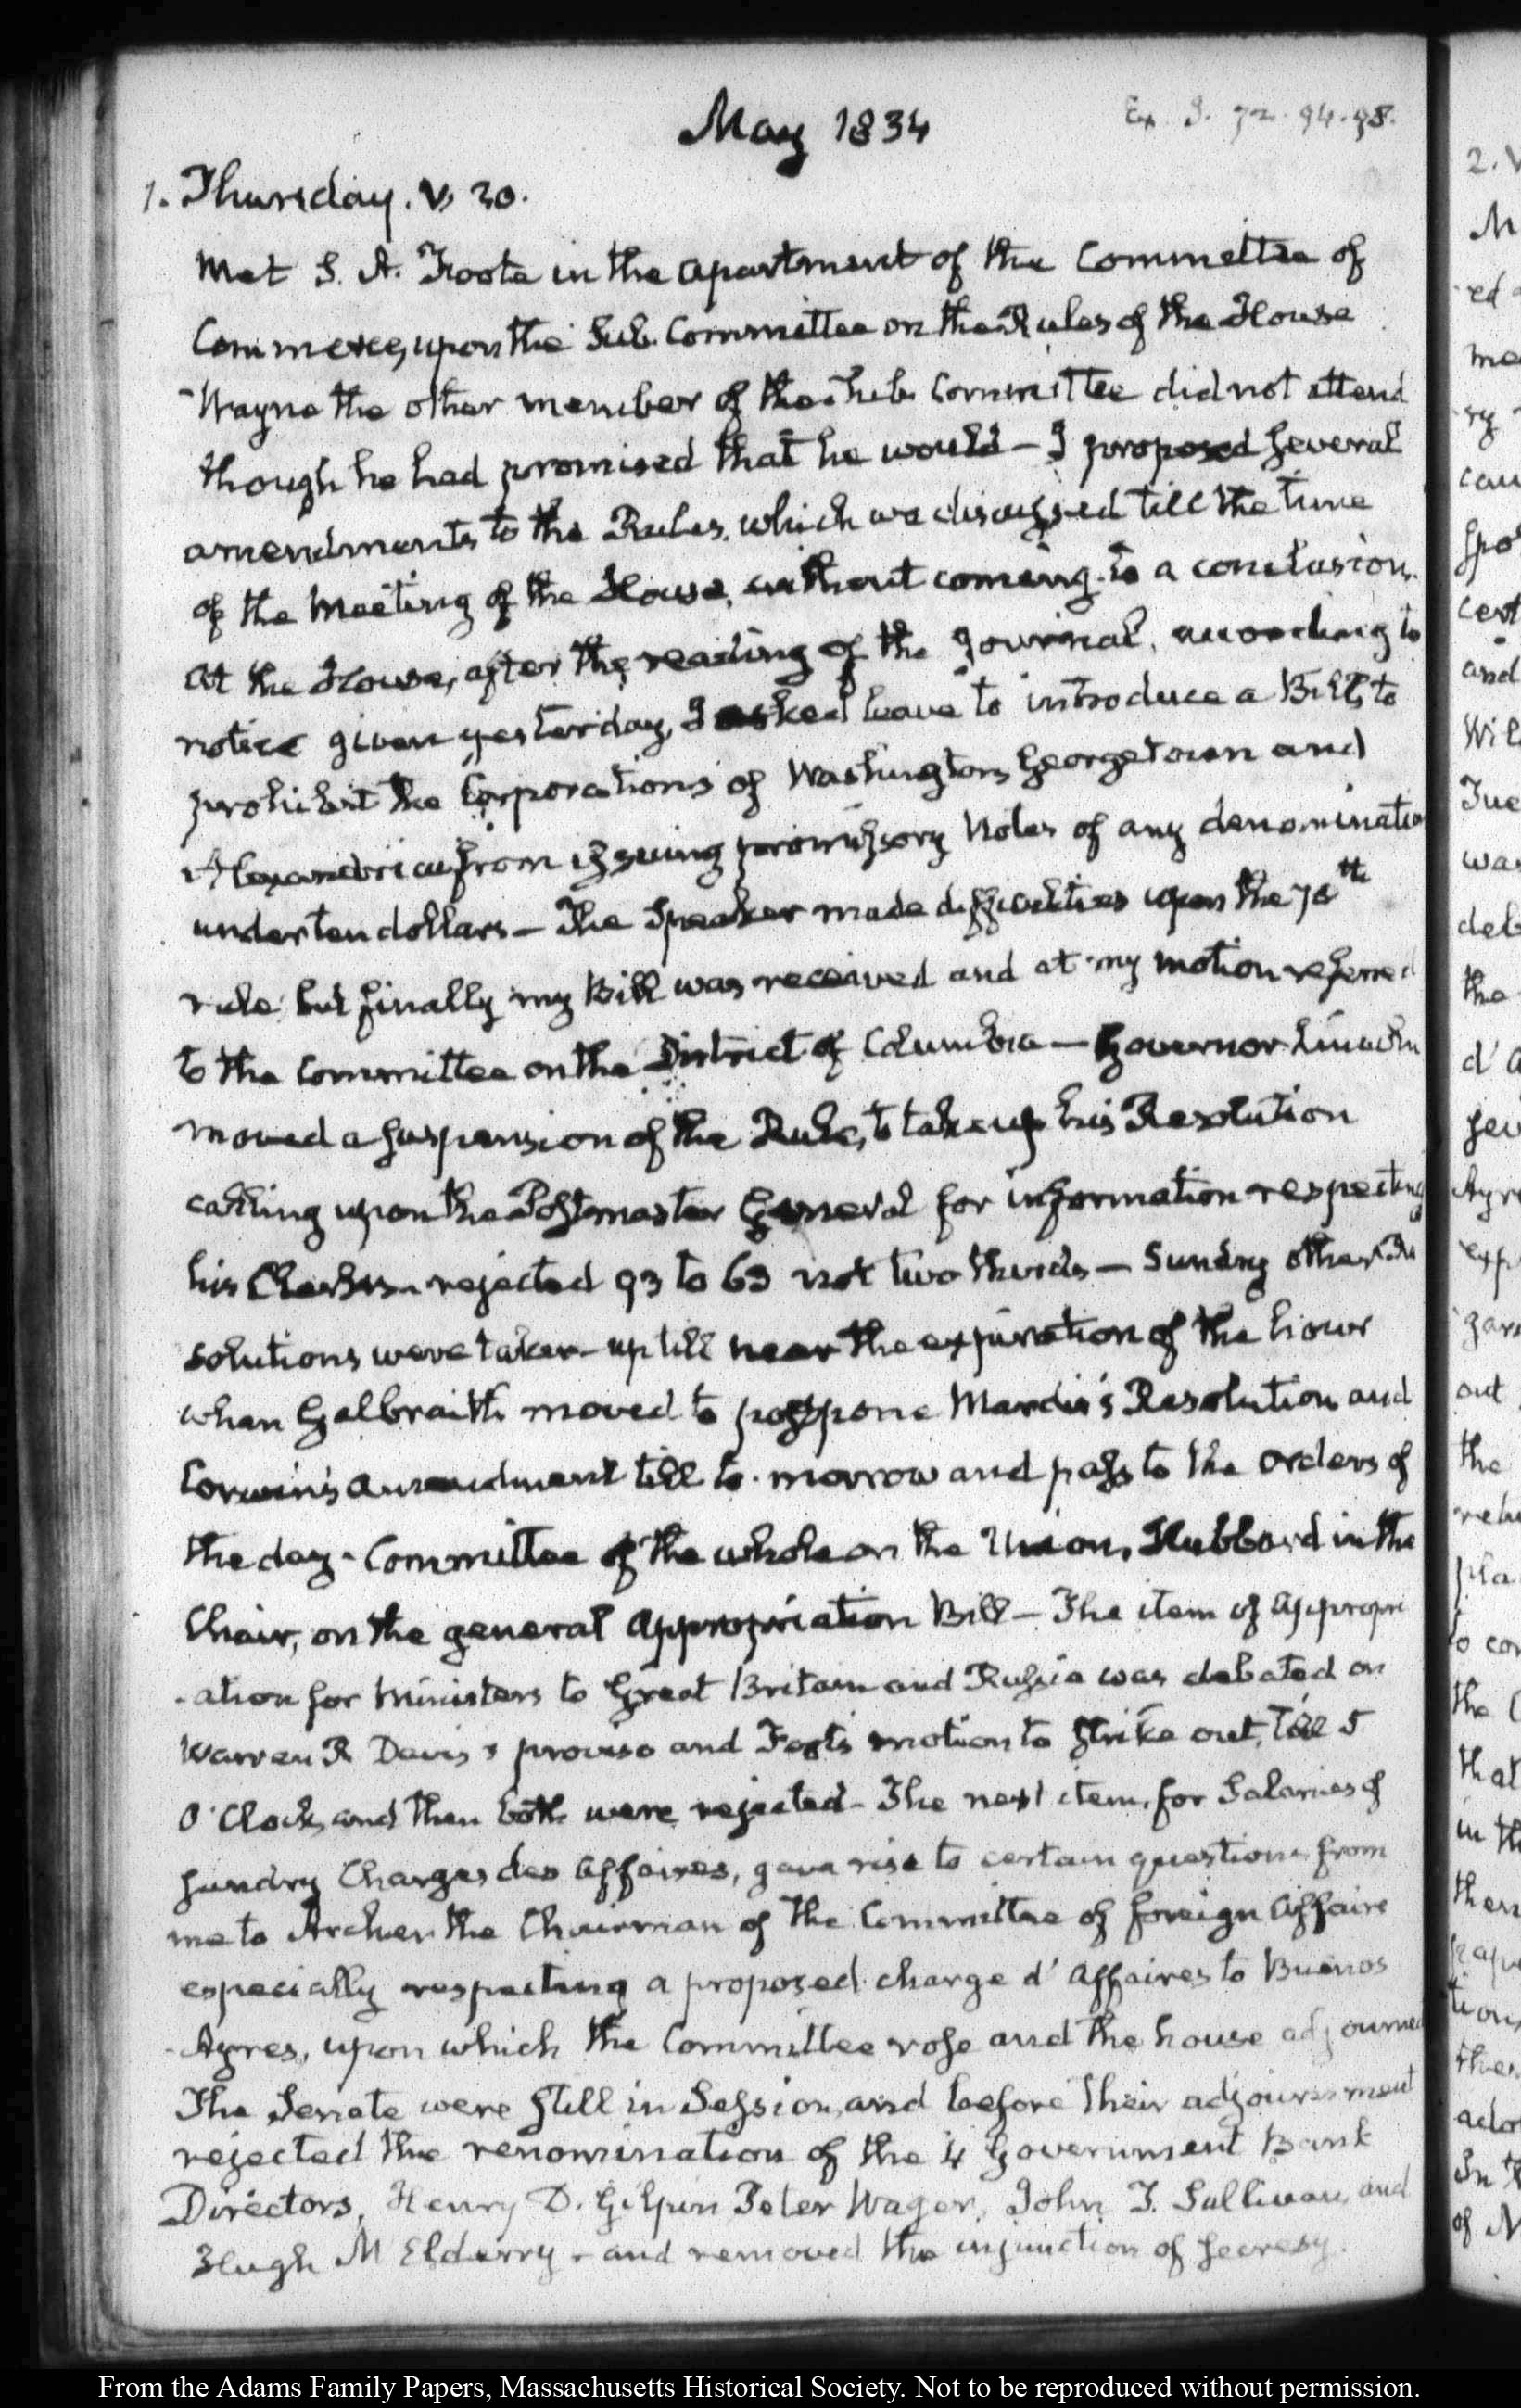 May 1834
Ex. S. 72. 94. 98.
1. Thursday. V. 30.
Met S. A. Foote in the apartment of the Committee of
Commerce, upon the Sub. Committee on the Rules of the House
Wayne the other member of the Sub Committee did not attend
though he had promised that he would — I proposed several
amendments to the Rules, which we discussed till the time
of the Meeting of the House, without coming to a conclusion.
At the House, after the reading of the Journal, according to
notice given yesterday, I asked leave to introduce a Bill, to
prohibit the Corporations of Washington, Georgetown and
Alexandria from issuing promissory Notes of any denominatio
under ten dollars — The Speaker made difficulties upon the 70th
rule, but finally my Bill was received and at my motion referred
to the Committee on the District of Columbia — Governor Lincoln
moved a suspension of the Rule, to take up his Resolution
calling upon the Postmaster General for information respecting
his Clerks — rejected 93 to 63 not two thirds — Sundry other Re
solutions were taken up till near the expiration of the hour
when Galbraith moved to postpone Mardis's Resolution and
Corwin's amendment till to-morrow and pass to the orders of
the day — Committee of the whole on the Union, Hubbard in the
Chair, on the general Appropriation Bill — The item of appropri
-ation for Ministers to Great Britain and Russia was debated on
Warren R Davis's proviso and Foot's motion to strike out, till 5
O'Clock, and then both were rejected — The next item, for Salaries of
sundry Charges des Affaires, gave rise to certain questions from
me to Archer the Chairman of the Committee of foreign Affairs
especially respecting a proposed charge d'Affaires to Buenos
-Ayres, upon which the Committee rose and the house adjourned
The Senate were still in Session, and before their adjournment
rejected the renomination of the 4 Government Bank
Directors, Henry D. Gilpin Peter Wager, John T. Sullivan, and
Hugh M Elderry — and removed the injunction of secresy.
From the Adams Family Papers, Massachusetts Historical Society. Not to be reproduced without permission.